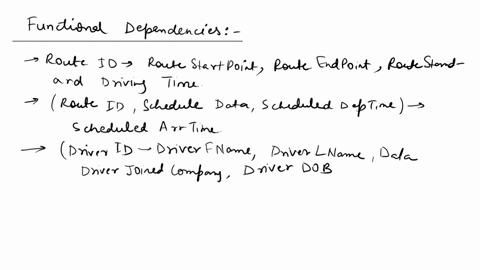 Functional Dependencies:-
→ Route ID → Route StartPoint, Route EndPoint, Route Stand-
ard Driving Time.
→ (Route ID, Schedule Data, Scheduled DepTime) →
Scheduled ArrTime
→ (Driver ID - Driver FName, Driver LName, Data
Driver Joined Company, Driver DOB